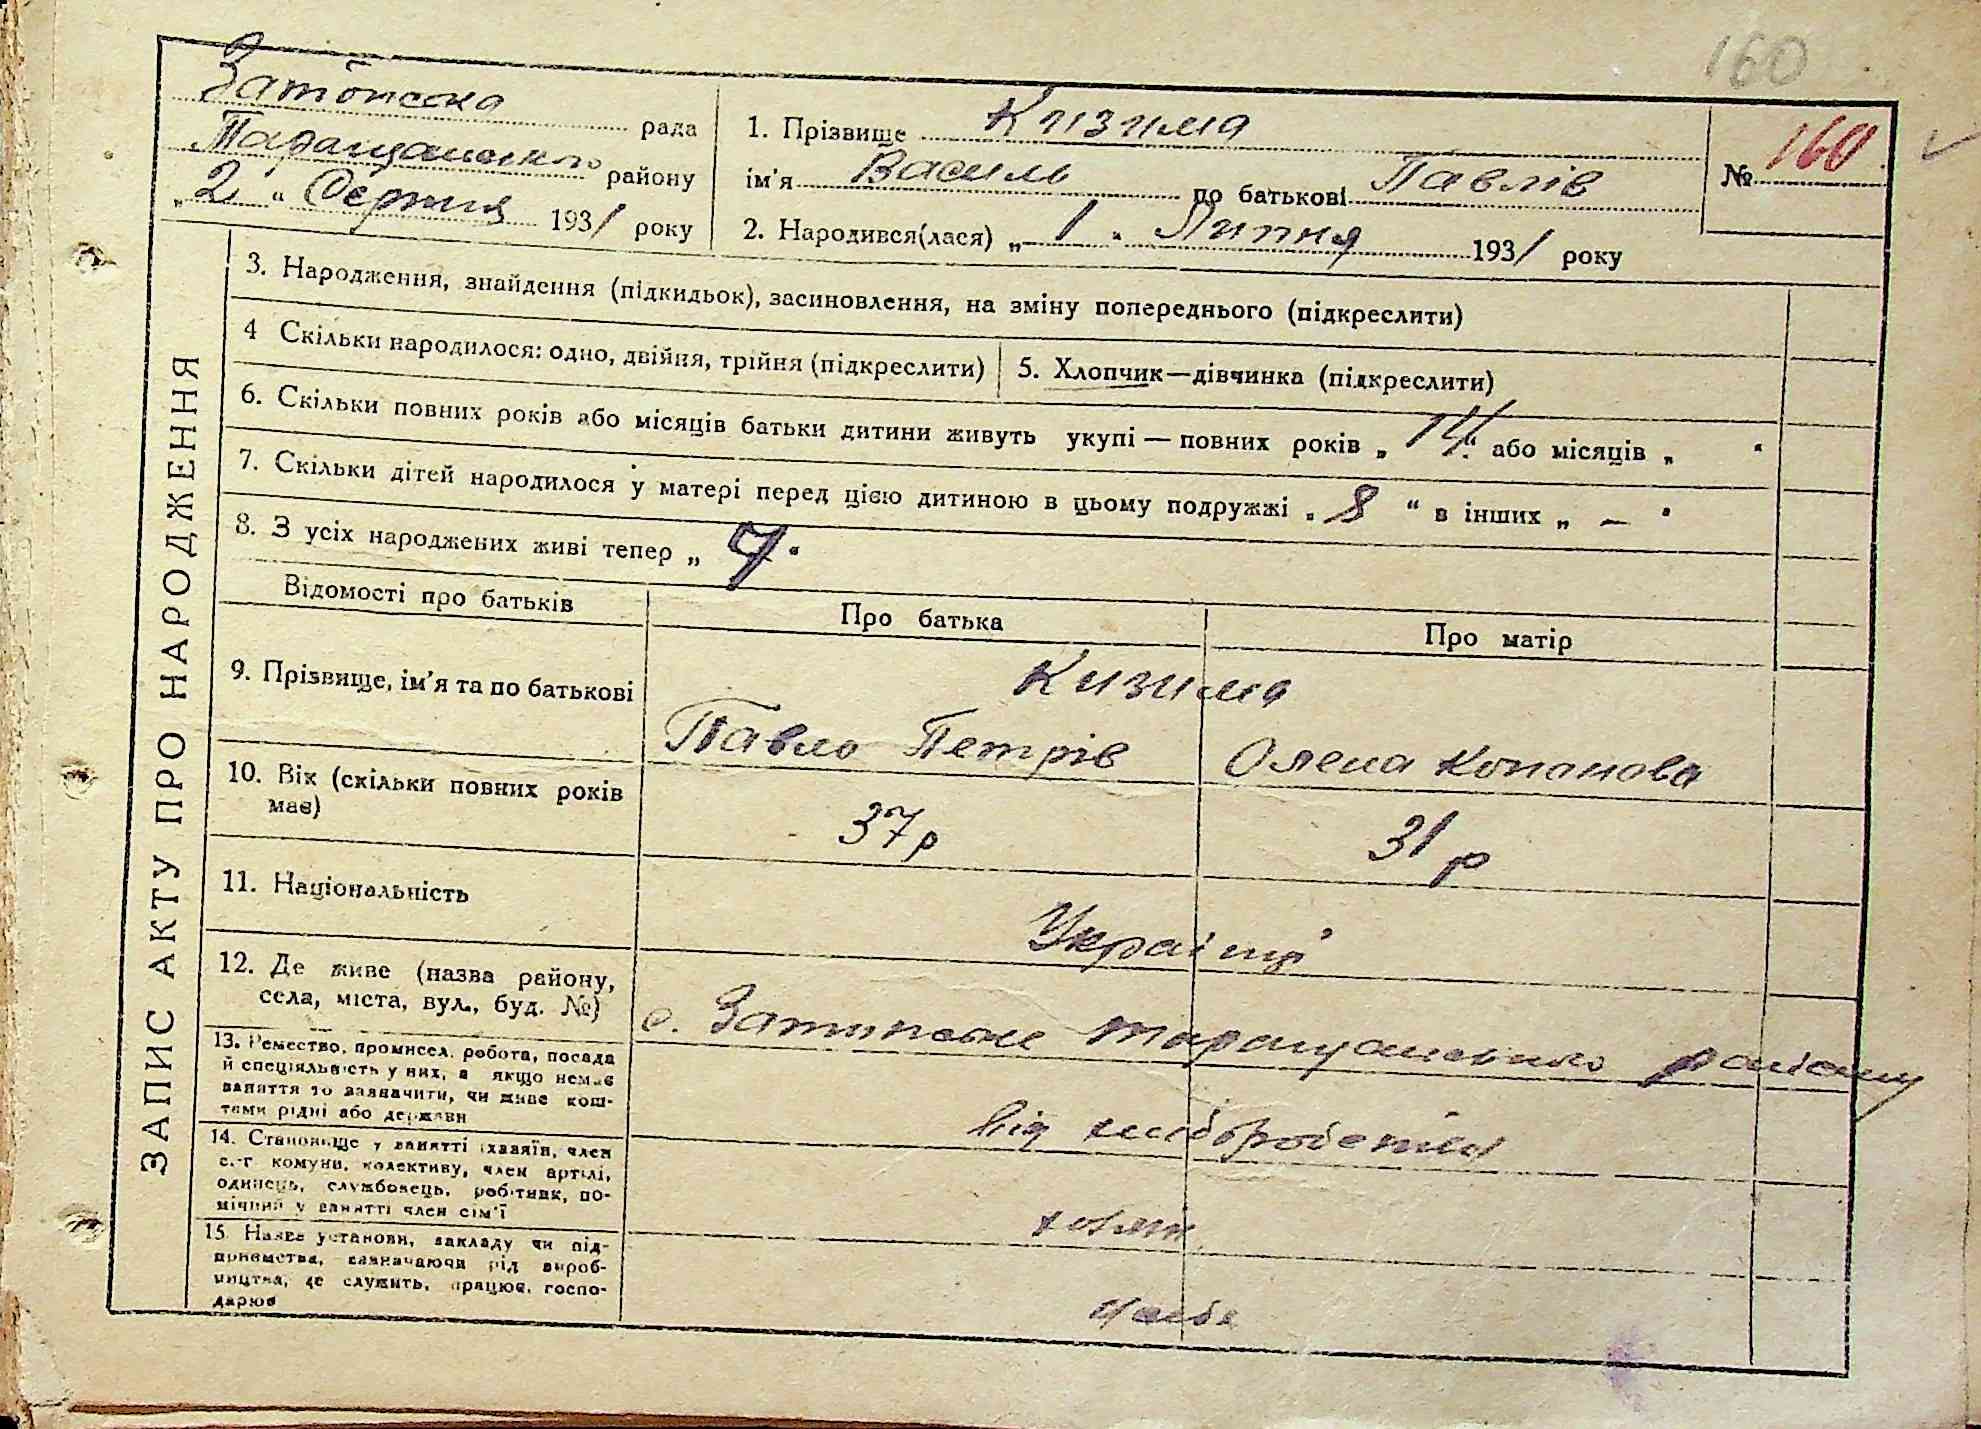 160
Затонська рада
Таращанського району
„ 2 “ Серпня 1931 року
1. Прізвище Кизима
ім'я Василь по батькові Павлів
2. Народився(лася) „ 1 “ Липня 1931 року
№ 160
ЗАПИС АКТУ ПРО НАРОДЖЕННЯ
3. Народження, знайдення (підкидьок), засиновлення, на зміну попереднього (підкреслити)
4 Скільки народилося: одно, двійня, трійня (підкреслити)
5. Хлопчик—дівчинка (підкреслити)
6. Скільки повних років або місяців батьки дитини живуть укупі — повних років „ 14 “ або місяців „ “
7. Скільки дітей народилося у матері перед цією дитиною в цьому подружжі „ 8 “ в інших „ — “
8. З усіх народжених живі тепер „ 7 “
Відомості про батьків
Про батька
Про матір
9. Прізвище, ім'я та по батькові
Кизима
Павло Петрів
Олена
10. Вік (скільки повних років
має)
37 р
31 р
11. Національність
Українці
12. Де живе (назва району,
села, міста, вул., буд. №)
с. Таращанського району
13. Ремество, промисел, робота, посада
й спеціяльність у них, а якщо немає
заняття то зазначити, чи живе кош-
тами рідні або держави
від хліборобства
14. Становище у занятті (хазяїн, член
с.-г. комуни, колективу, член артілі,
одинець, службовець, робітник, по-
мічний у занятті член сім'ї
хозяїн
15. Назва установи, закладу чи під-
приємства, зазначаючи рід вироб-
ництва, де служить, працює, госпо-
дарює